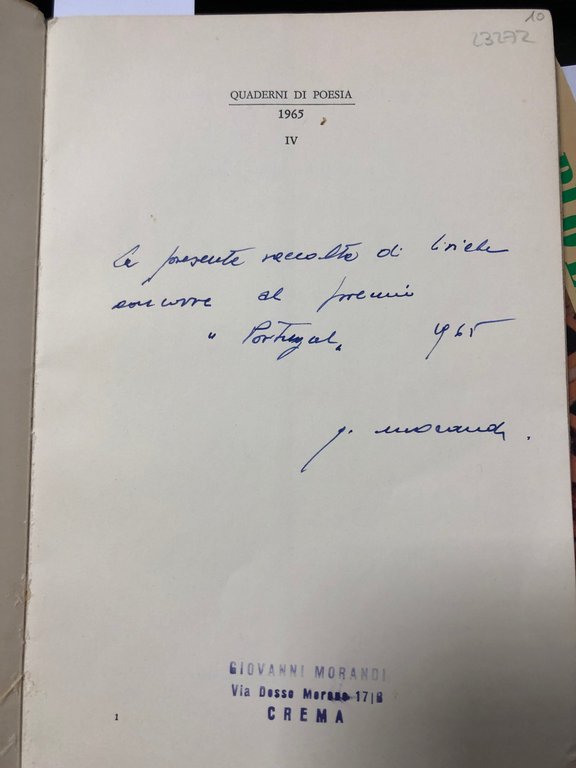 10
23272
QUADERNI DI POESIA
1965
IV
la presente raccolta di liriche
concorre al premio
" Portugal " 1965
g. morandi.
GIOVANNI MORANDI
Via Dosso Morone 17|B
CREMA
1